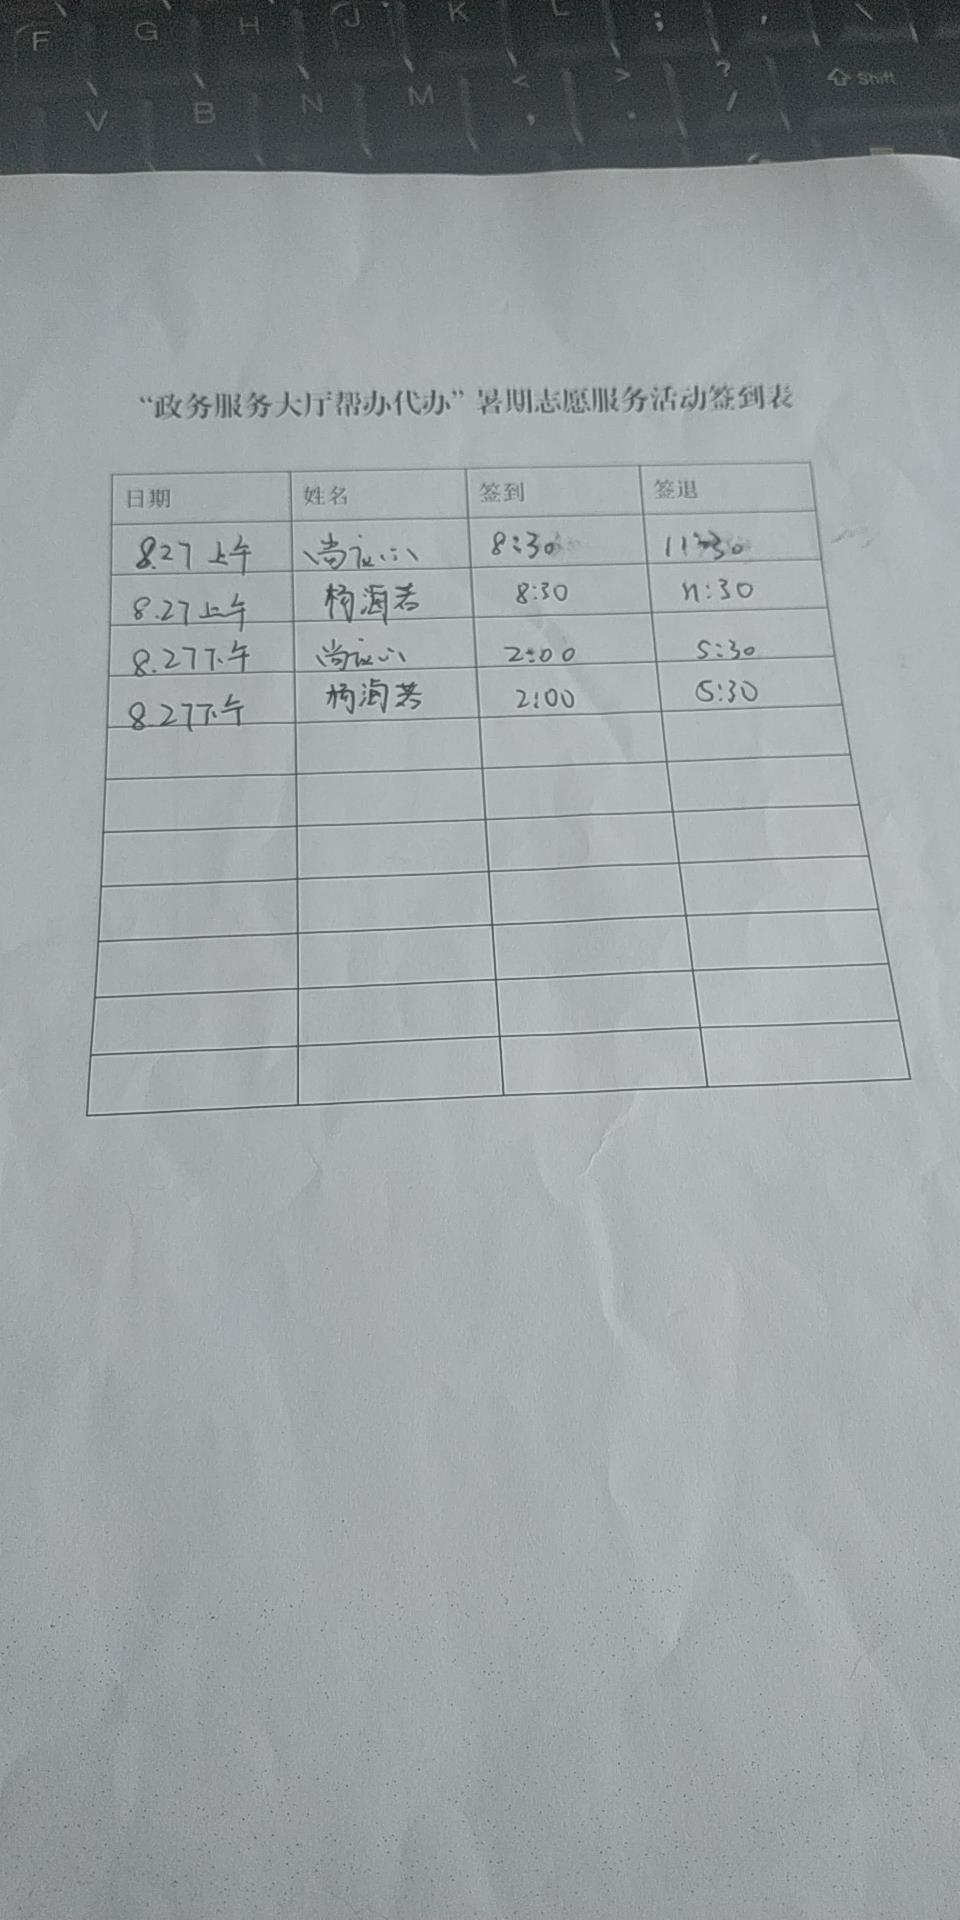 F G H J K L ; ' \
V B N M < , > . ? / Shift
“政务服务大厅帮办代办”暑期志愿服务活动签到表
日期 姓名 签到 签退
8.27 上午 尚 8:30 11:30
8.27上午 杨海若 8:30 11:30
8.27下午 尚 2:00 5:30
8.27下午 杨海若 2:00 5:30